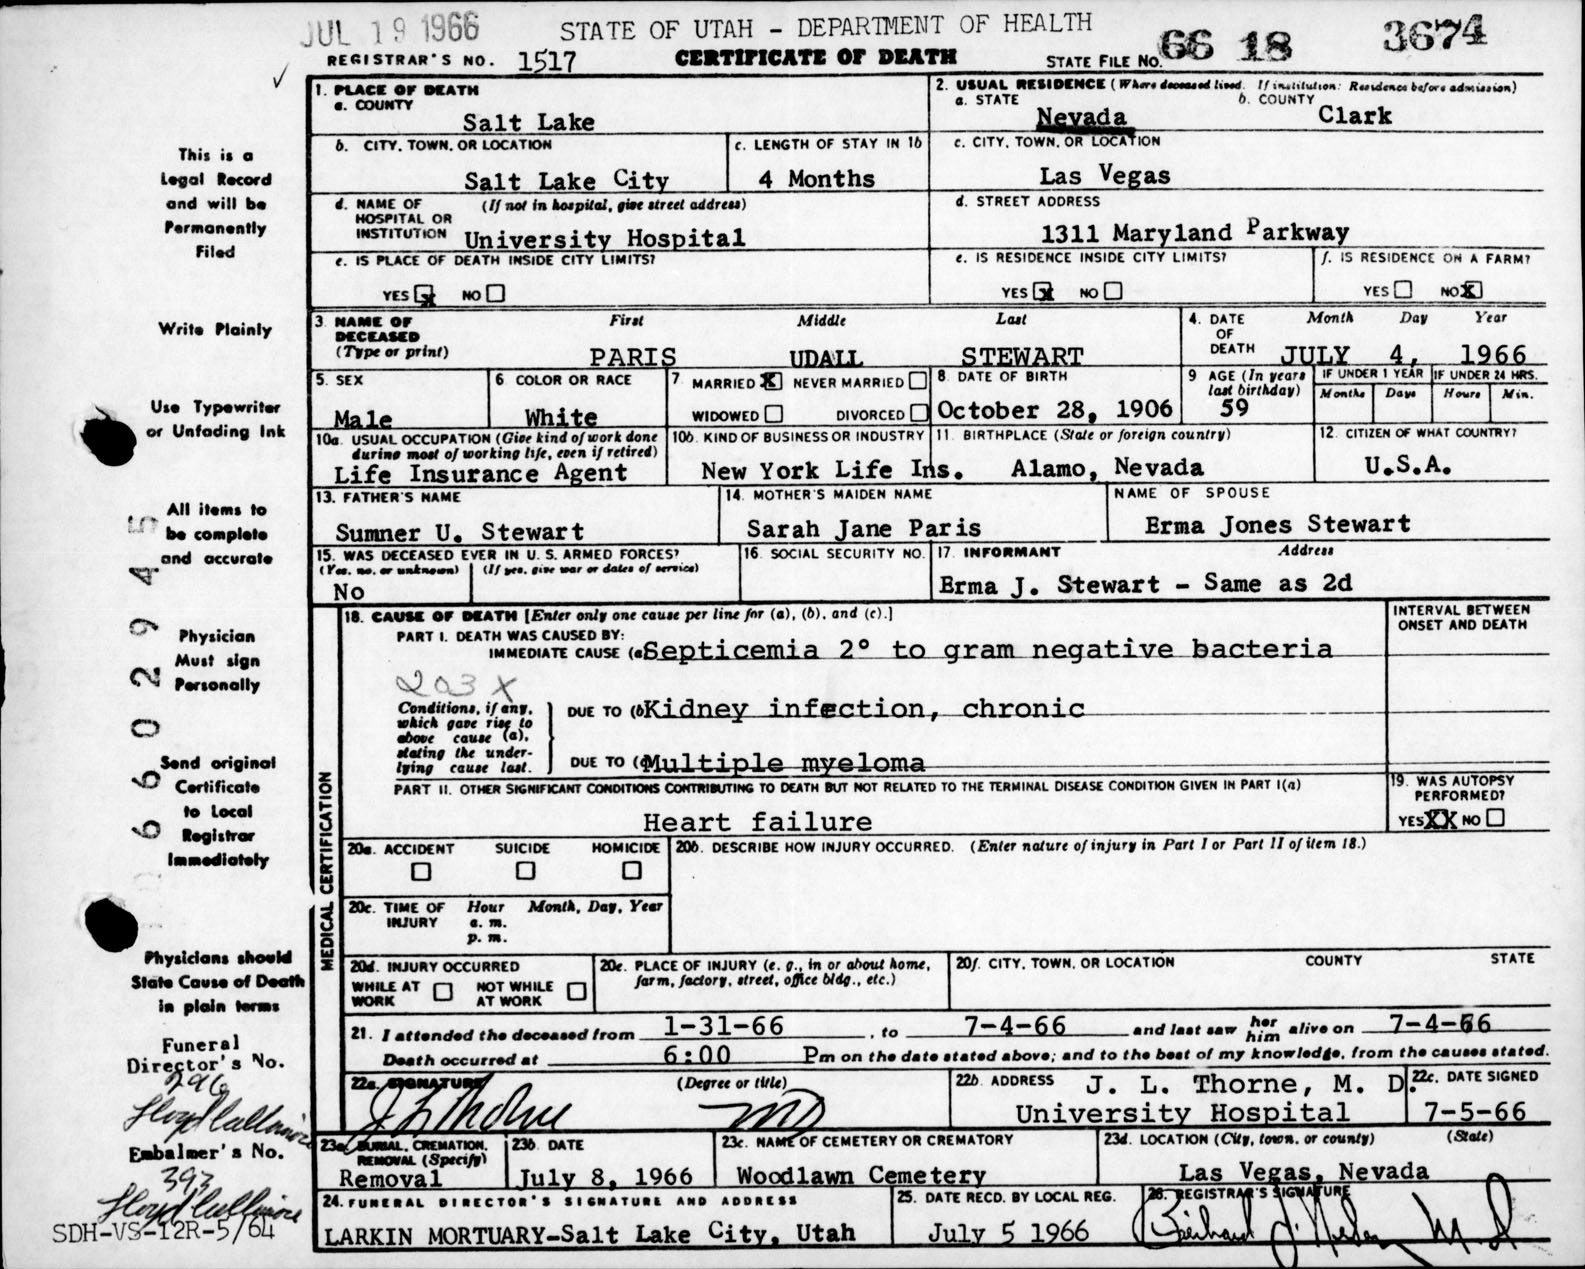 JUL 19 1966
STATE OF UTAH - DEPARTMENT OF HEALTH
REGISTRAR'S NO. 1517 CERTIFICATE OF DEATH STATE FILE NO. 66 18 3674
1. PLACE OF DEATH
a. COUNTY
Salt Lake
2. USUAL RESIDENCE (Where deceased lived. If institution: Residence before admission)
a. STATE b. COUNTY
Nevada Clark
b. CITY, TOWN, OR LOCATION
Salt Lake City
c. LENGTH OF STAY IN 1b
4 Months
c. CITY, TOWN, OR LOCATION
Las Vegas
d. NAME OF HOSPITAL OR INSTITUTION (If not in hospital, give street address)
University Hospital
d. STREET ADDRESS
1311 Maryland Parkway
e. IS PLACE OF DEATH INSIDE CITY LIMITS?
YES x NO
e. IS RESIDENCE INSIDE CITY LIMITS?
YES x NO
f. IS RESIDENCE ON A FARM?
YES NO X
3. NAME OF DECEASED (Type or print)
First Middle Last
PARIS UDALL STEWART
4. DATE OF DEATH
Month Day Year
JULY 4, 1966
5. SEX
Male
6. COLOR OR RACE
White
7. MARRIED X NEVER MARRIED
WIDOWED DIVORCED
8. DATE OF BIRTH
October 28, 1906
9 AGE (In years last birthday)
59
IF UNDER 1 YEAR
Months Days
IF UNDER 24 HRS.
Hours Min.
10a. USUAL OCCUPATION (Give kind of work done during most of working life, even if retired)
Life Insurance Agent
10b. KIND OF BUSINESS OR INDUSTRY
New York Life Ins.
11. BIRTHPLACE (State or foreign country)
Alamo, Nevada
12. CITIZEN OF WHAT COUNTRY?
U.S.A.
13. FATHER'S NAME
Sumner U. Stewart
14. MOTHER'S MAIDEN NAME
Sarah Jane Paris
NAME OF SPOUSE
Erma Jones Stewart
15. WAS DECEASED EVER IN U. S. ARMED FORCES?
(Yes, no, or unknown) (If yes, give war or dates of service)
No
16. SOCIAL SECURITY NO.
17. INFORMANT Address
Erma J. Stewart - Same as 2d
MEDICAL CERTIFICATION
18. CAUSE OF DEATH [Enter only one cause per line for (a), (b), and (c).]
INTERVAL BETWEEN ONSET AND DEATH
PART I. DEATH WAS CAUSED BY:
IMMEDIATE CAUSE (a Septicemia 2° to gram negative bacteria
203 X
Conditions, if any, which gave rise to above cause (a), stating the underlying cause last.
DUE TO (b Kidney infection, chronic
DUE TO ( Multiple myeloma
PART II. OTHER SIGNIFICANT CONDITIONS CONTRIBUTING TO DEATH BUT NOT RELATED TO THE TERMINAL DISEASE CONDITION GIVEN IN PART I(a)
Heart failure
19. WAS AUTOPSY PERFORMED?
YES XX NO
20a. ACCIDENT SUICIDE HOMICIDE
20b. DESCRIBE HOW INJURY OCCURRED. (Enter nature of injury in Part I or Part II of item 18.)
20c. TIME OF INJURY Hour Month, Day, Year
a. m.
p. m.
20d. INJURY OCCURRED
WHILE AT WORK NOT WHILE AT WORK
20e. PLACE OF INJURY (e. g., in or about home, farm, factory, street, office bldg., etc.)
20f. CITY, TOWN, OR LOCATION COUNTY STATE
21. I attended the deceased from 1-31-66, to 7-4-66 and last saw her him alive on 7-4-66
Death occurred at 6:00 Pm on the date stated above; and to the best of my knowledge, from the causes stated.
22a. SIGNATURE (Degree or title)
J L Thorne MD
22b. ADDRESS J. L. Thorne, M. D.
University Hospital
22c. DATE SIGNED
7-5-66
23a. BURIAL, CREMATION, REMOVAL (Specify)
Removal
23b. DATE
July 8, 1966
23c. NAME OF CEMETERY OR CREMATORY
Woodlawn Cemetery
23d. LOCATION (City, town, or county) (State)
Las Vegas, Nevada
24. FUNERAL DIRECTOR'S SIGNATURE AND ADDRESS
LARKIN MORTUARY-Salt Lake City, Utah
25. DATE RECD. BY LOCAL REG.
July 5 1966
26. REGISTRAR'S SIGNATURE
This is a
Legal Record
and will be
Permanently
Filed
Write Plainly
Use Typewriter
or Unfading Ink
All items to
be complete
and accurate
Physician
Must sign
Personally
Send original
Certificate
to Local
Registrar
Immediately
Physicians should
State Cause of Death
in plain terms
Funeral
Director's No.
296
Embalmer's No.
393
SDH-VS-12R-5/64
6 6 0 2 9 4 5